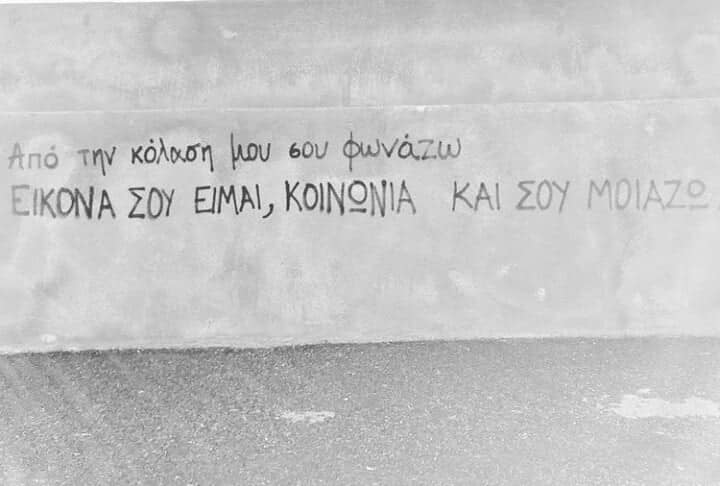 Από την κόλαση μου σου φωνάζω
ΕΙΚΟΝΑ ΣΟΥ ΕΙΜΑΙ, ΚΟΙΝΩΝΙΑ ΚΑΙ ΣΟΥ ΜΟΙΑΖΩ